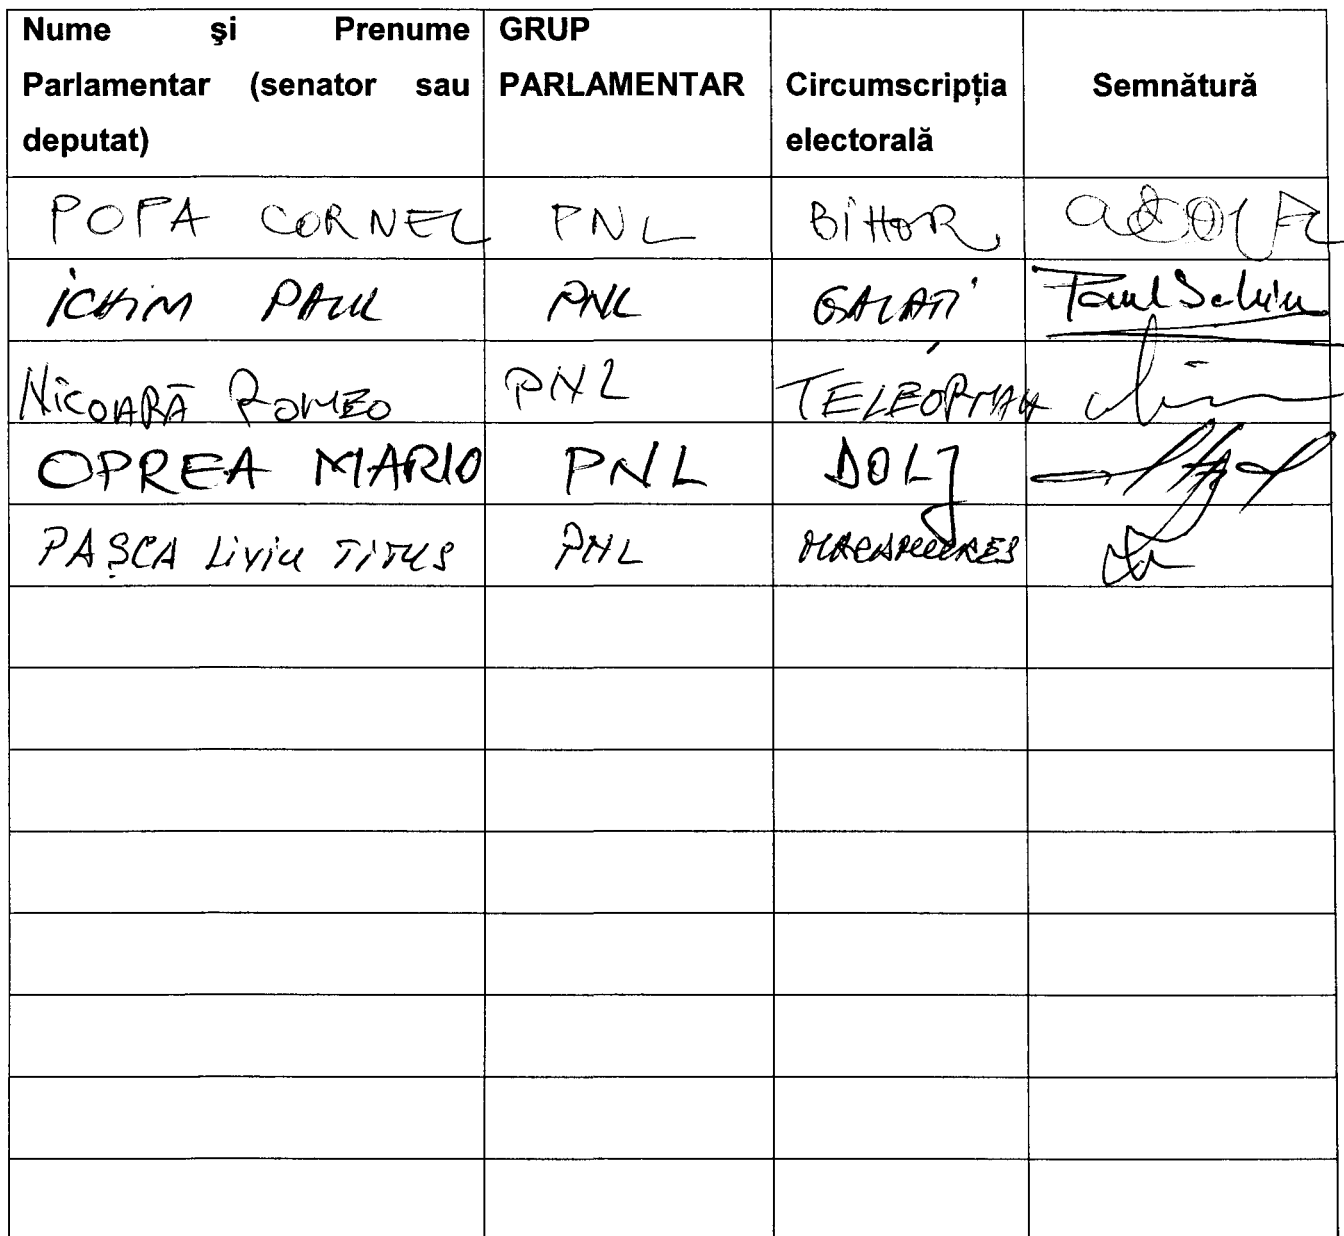 Nume şi Prenume Parlamentar (senator sau deputat) GRUP PARLAMENTAR Circumscripţia electorală Semnătură
POPA CORNEL PNL BiHOR
iCHiM PAUL PNL GALAŢi
NiCOARĂ ROMEO PNL TELEORMAN
OPREA MARIO PNL DOLJ
PAŞCA LiViu TiTUS PNL MARAMUREŞ